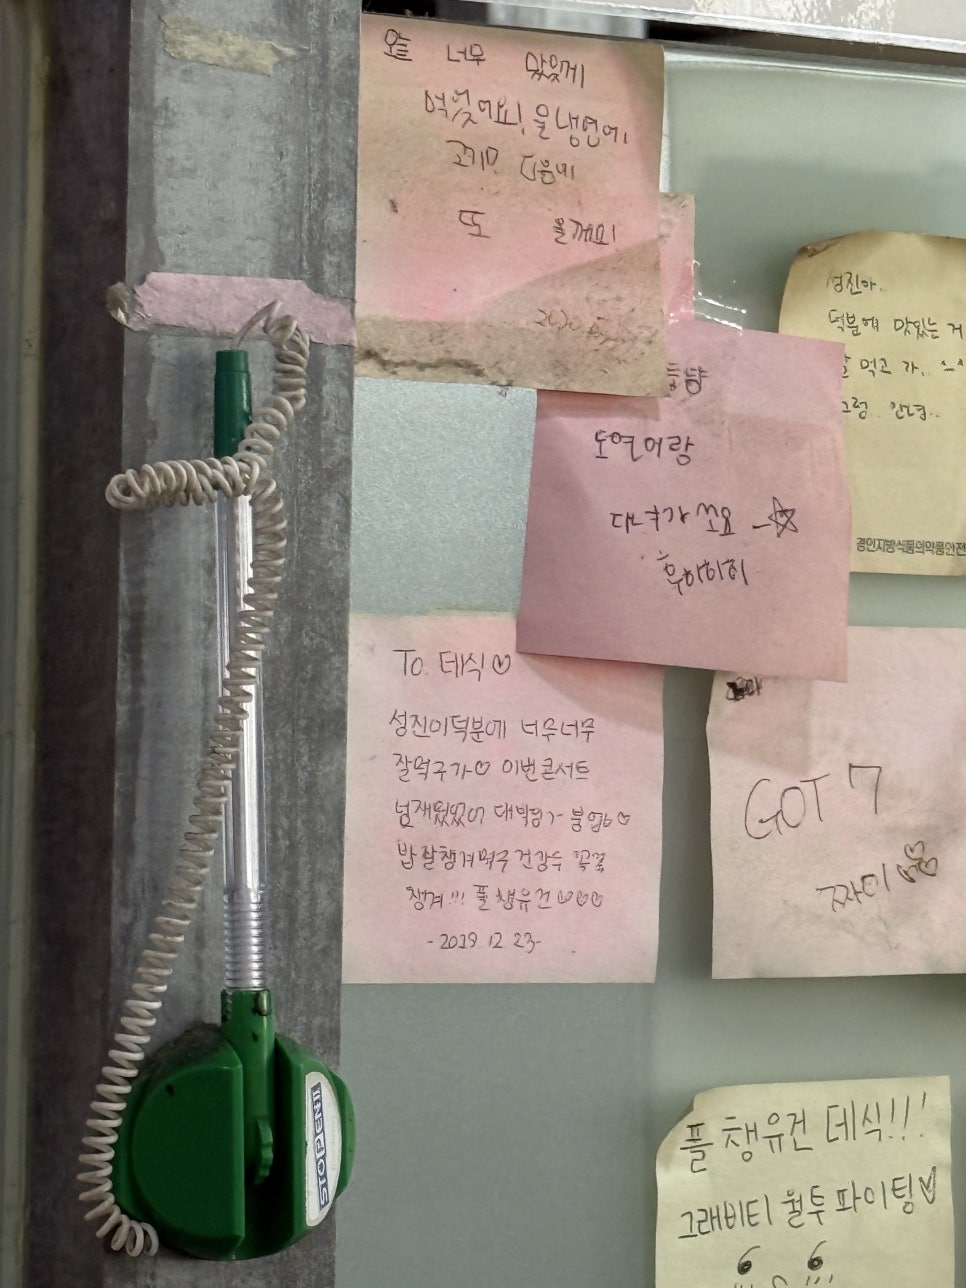 오늘 너무 맛있게
먹었어요! 물냉면에
고기만 다음에
또 올께요!
성진아..
덕분에 맛있는 거
잘 먹고 가..
그럼.. 안녕..
경인지방식품의약품안전
도연이랑
다녀가쏘요
후하히히
To. 테식♡
성진이덕분에 너무너무
잘먹구가♡ 이번콘서트
넘재밌었어
밥 잘챙겨먹구 건강두 꼭꼭
챙겨!!! 플챙유건♡♡♡
-2019.12.23-
GOT 7
짜이
플챙유건 테식!!!
그래비티 월투 파이팅♡
STOPEN!!